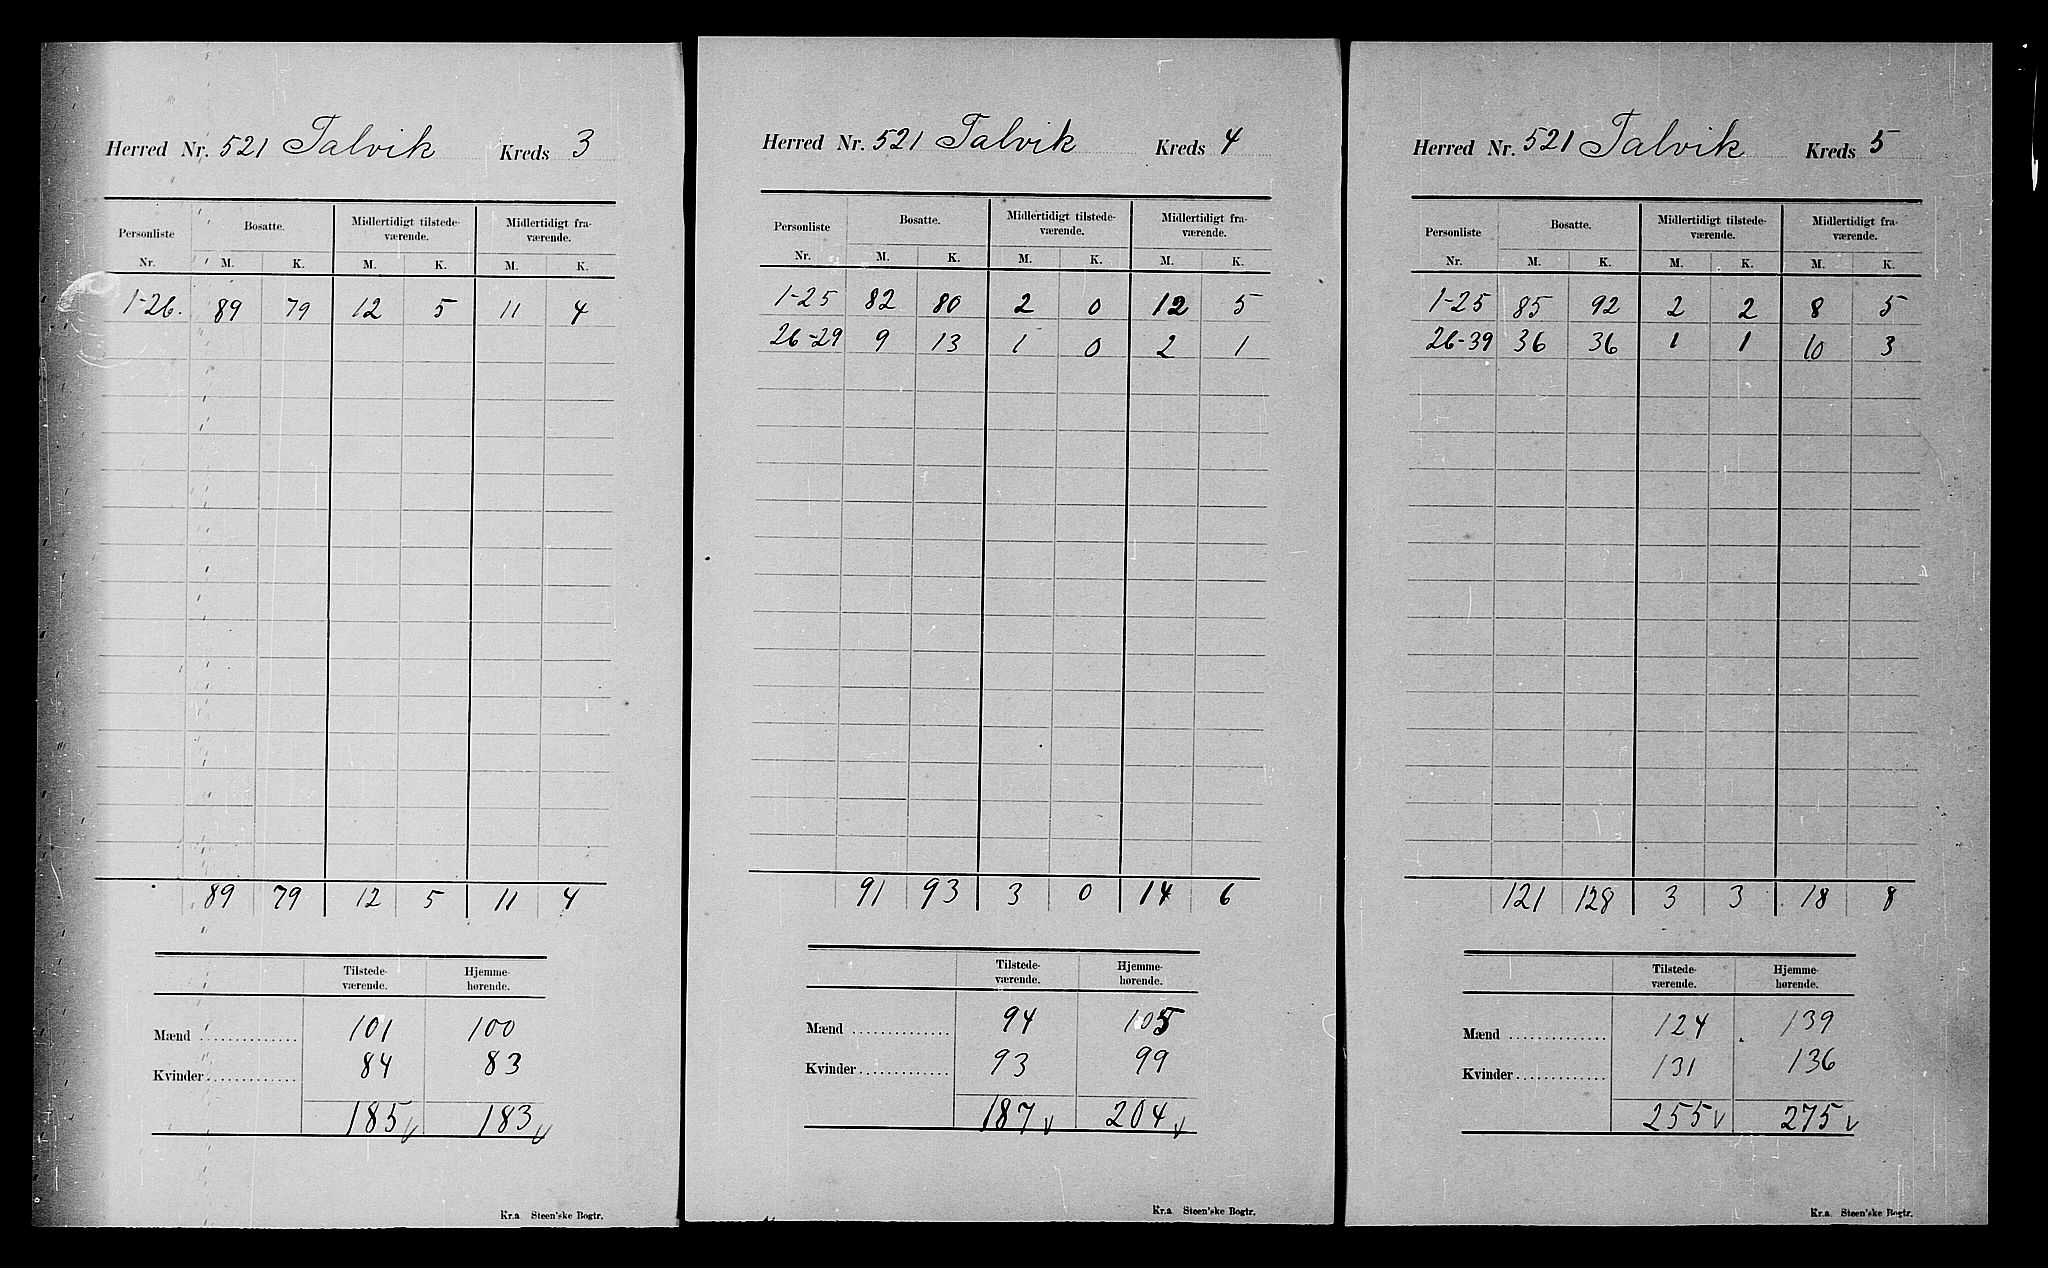 Herred Nr. 521 Talvik Kreds 3
Personliste Bosatte. Midlertidigt tilstede- Midlertidigt fra-
værende. værende.
Nr. M. K. M. K. M. K.
1-26. 89 79 12 5 11 4
89 79 12 5 11 4
Tilstede- Hjemme-
værende. hørende.
Mænd 101 100
Kvinder 84 83
185 v 183 v
Kr.a. Steen'ske Bogtr.
Herred Nr. 521 Talvik Kreds 4
Personliste Bosatte. Midlertidigt tilstede- Midlertidigt fra-
værende. værende.
Nr. M. K. M. K. M. K.
1-25 82 80 2 0 12 5
26-29 9 13 1 0 2 1
91 93 3 0 14 6
Tilstede- Hjemme-
værende. hørende.
Mænd 94 105
Kvinder 93 99
187 v 204 v
Kr.a. Steen'ske Bogtr.
Herred Nr. 521 Talvik Kreds 5
Personliste Bosatte. Midlertidigt tilstede- Midlertidigt fra-
værende. værende.
Nr. M. K. M. K. M. K.
1-25 85 92 2 2 8 5
26-39 36 36 1 1 10 3
121 128 3 3 18 8
Tilstede- Hjemme-
værende. hørende.
Mænd 124 139
Kvinder 131 136
255 v 275 v
Kr.a. Steen'ske Bogtr.